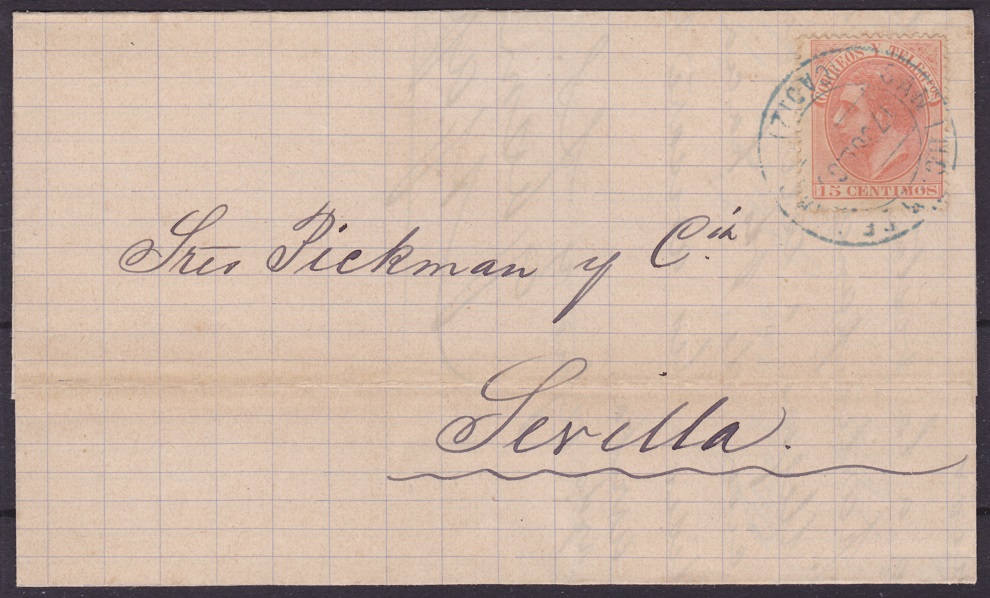 CORREOS Y TELEGFOS
15 CENTIMOS
Sres Pickman y Cía
Sevilla.